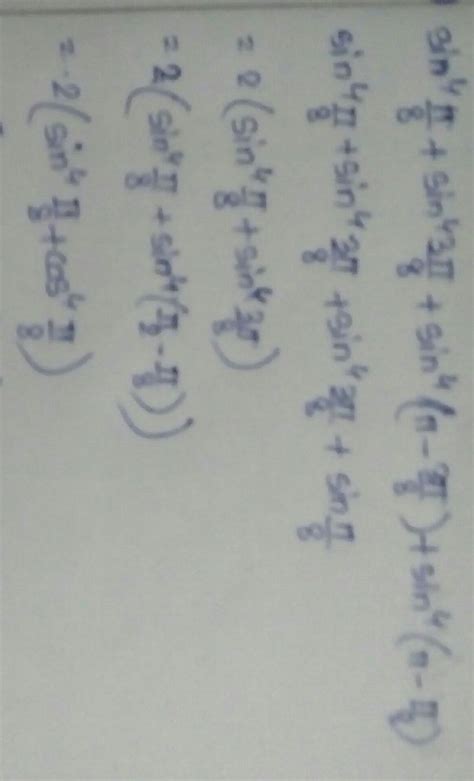 sin⁴ π/8 + sin⁴ 3π/8 + sin⁴ (π - 3π/8) + sin⁴ (π - π/8)
sin⁴ π/8 + sin⁴ 3π/8 + sin⁴ 3π/8 + sin π/8
= 2 (sin⁴ π/8 + sin⁴ 3π/8)
= 2 (sin⁴ π/8 + sin⁴ (π/2 - π/8))
= 2 (sin⁴ π/8 + cos⁴ π/8)